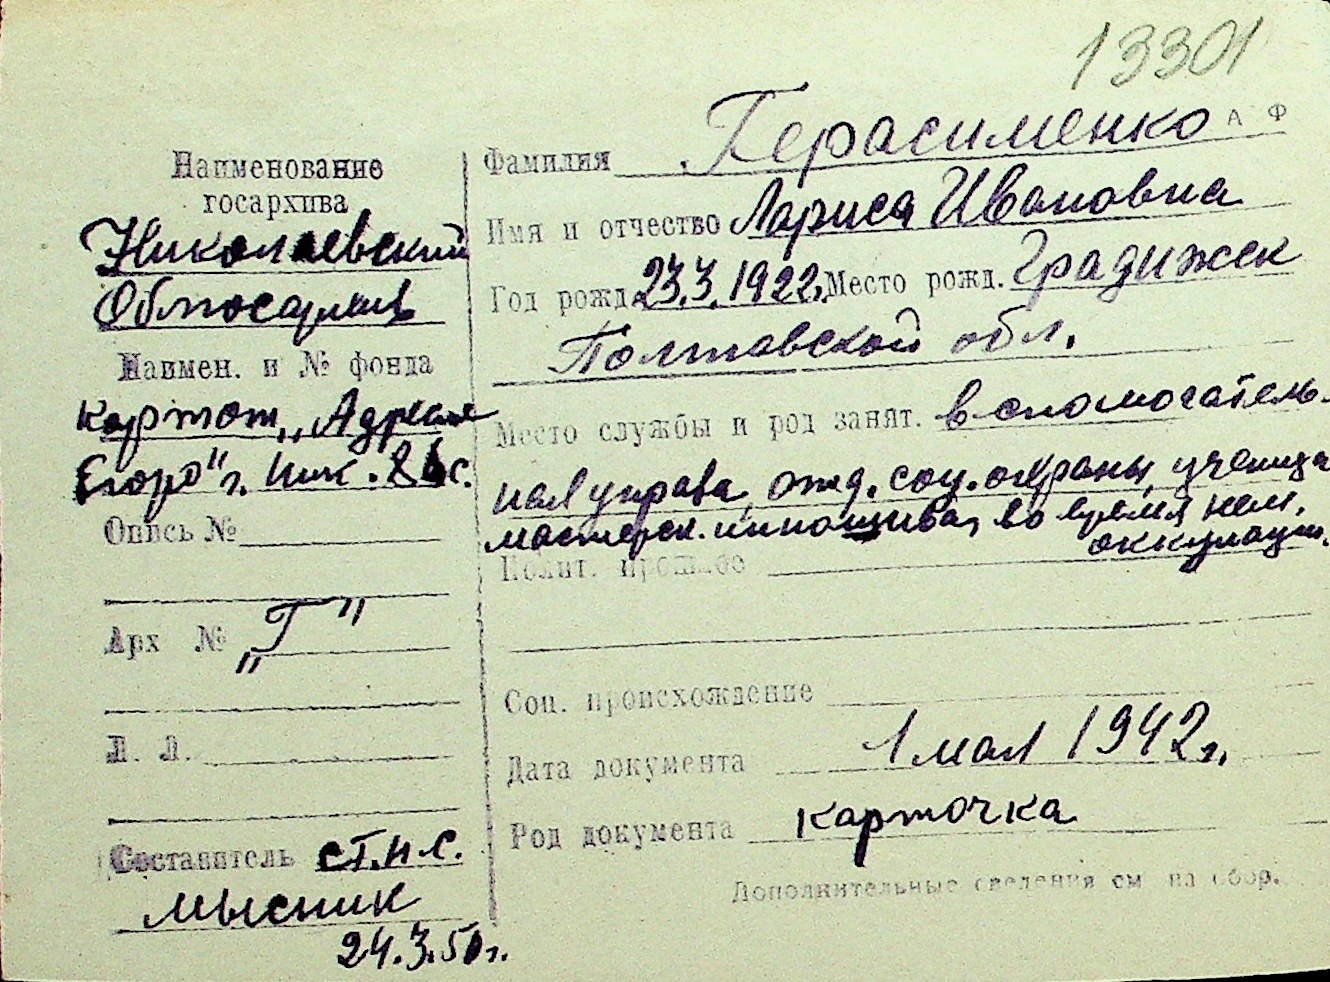 13301
Наименование
госархива
Николаевский
Облгосархив
Наимен. и № фонда
картот. „Адресн
бюро" г. Ник.
Опись №
Арх №
„Г"
Л. Л.
Составитель ст.н.с.
Мысник
24.3.50г.
Фамилия Герасименко А Ф
Имя и отчество Лариса Ивановна
Год рожд. 23.3.1922г. Место рожд. Градижск
Полтавской обл.
Место службы и род занят. вспомогатель-
ная управа, отд. соц. охраны, ученица
мастерск. во время нем.
оккупации.
Полит. прошлое
Соц. происхождение
Дата документа 1 мая 1942г.
Род документа карточка
Дополнительные сведения см. на обор.